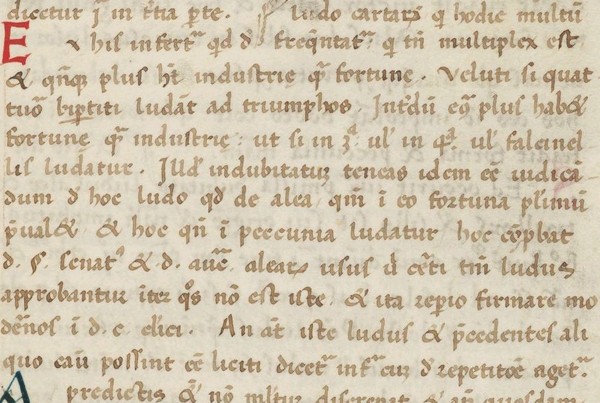 dicetur ȷ̄ in t̄tia p̄te. ¶ ludo cartaꝝ q̄ hodie multū
Ex his infertᷣ qd d̄ freq̄ntatᷣ. q̄ tn̄ multiplex est
& qn̄qꝫ plus ht̄ industrię qᷓ fortunę. Veluti si quat
tuor bip̱titi ludāt ad triumphos. Int̄dū eqͣ plus hab&
fortunę qᷓ industrię: ut si in ʒͣ. ul̓ in qͣ. ul̓ falcinel
lis ludatur. Illd̓ indubitatur teneas idem eē iudicā
dum d̓ hoc ludo qd̓ de alea, qm̄ ī eo fortuna pl̓imū
p̄ual& & hoc qn̄ ī peccunia ludatur hoc cōp̱bat
d. §. senatꝰ & d. auc̄. alearꝝ usus
approbantur iteꝝ qͦs nō est iste. & ita rep̱io firmare mo
dēnos ī d. c. cl̓ici. An āt iste ludus & p̄cedentes ali
quo casū possint eē liciti dicetᷣ infᷓ cuꝫ d̓ repetitōē agetᷣ.
predictis & nō